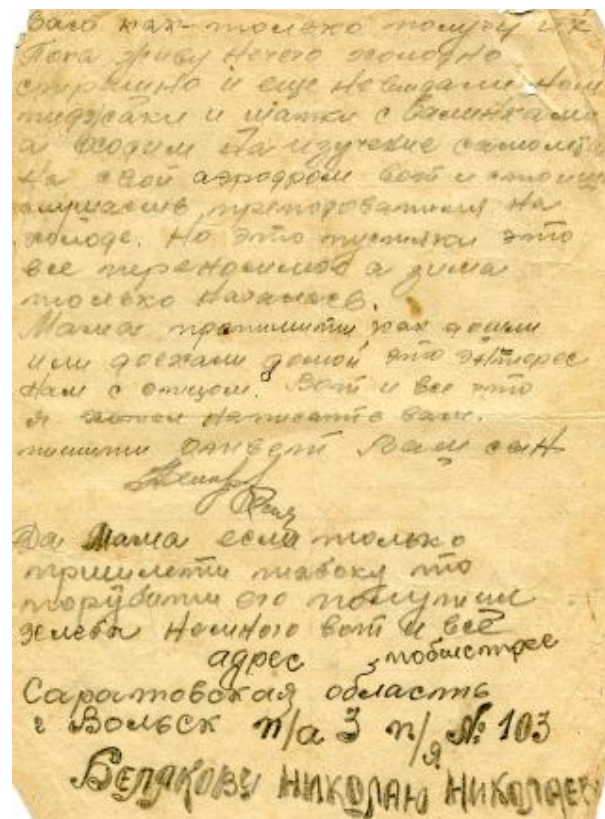 вам как только получу их
Пока живу нечего холодно
страшно и еще не выдали нам
пиджаки и шапки с валинками
а ходим на изучение самолёта
на свой аэродром вот и стоиш
слушаешь преподователя на
холоде. Но это пустяки это
все переносимое а зима
только началась.
Мама пропишити как дошли
или доехали домой это энтерес
нам с отцом. Вот и все что
я хотел написать вам.
пишити ответ Ваш сын
Да Мама если только
пришлети табоку то
порубити его помутим
хлеба немного вот и всё
адрес побыстрее
Саратовская область
г Вольск п/о 3 п/я № 103
Белякову Николаю Николаев